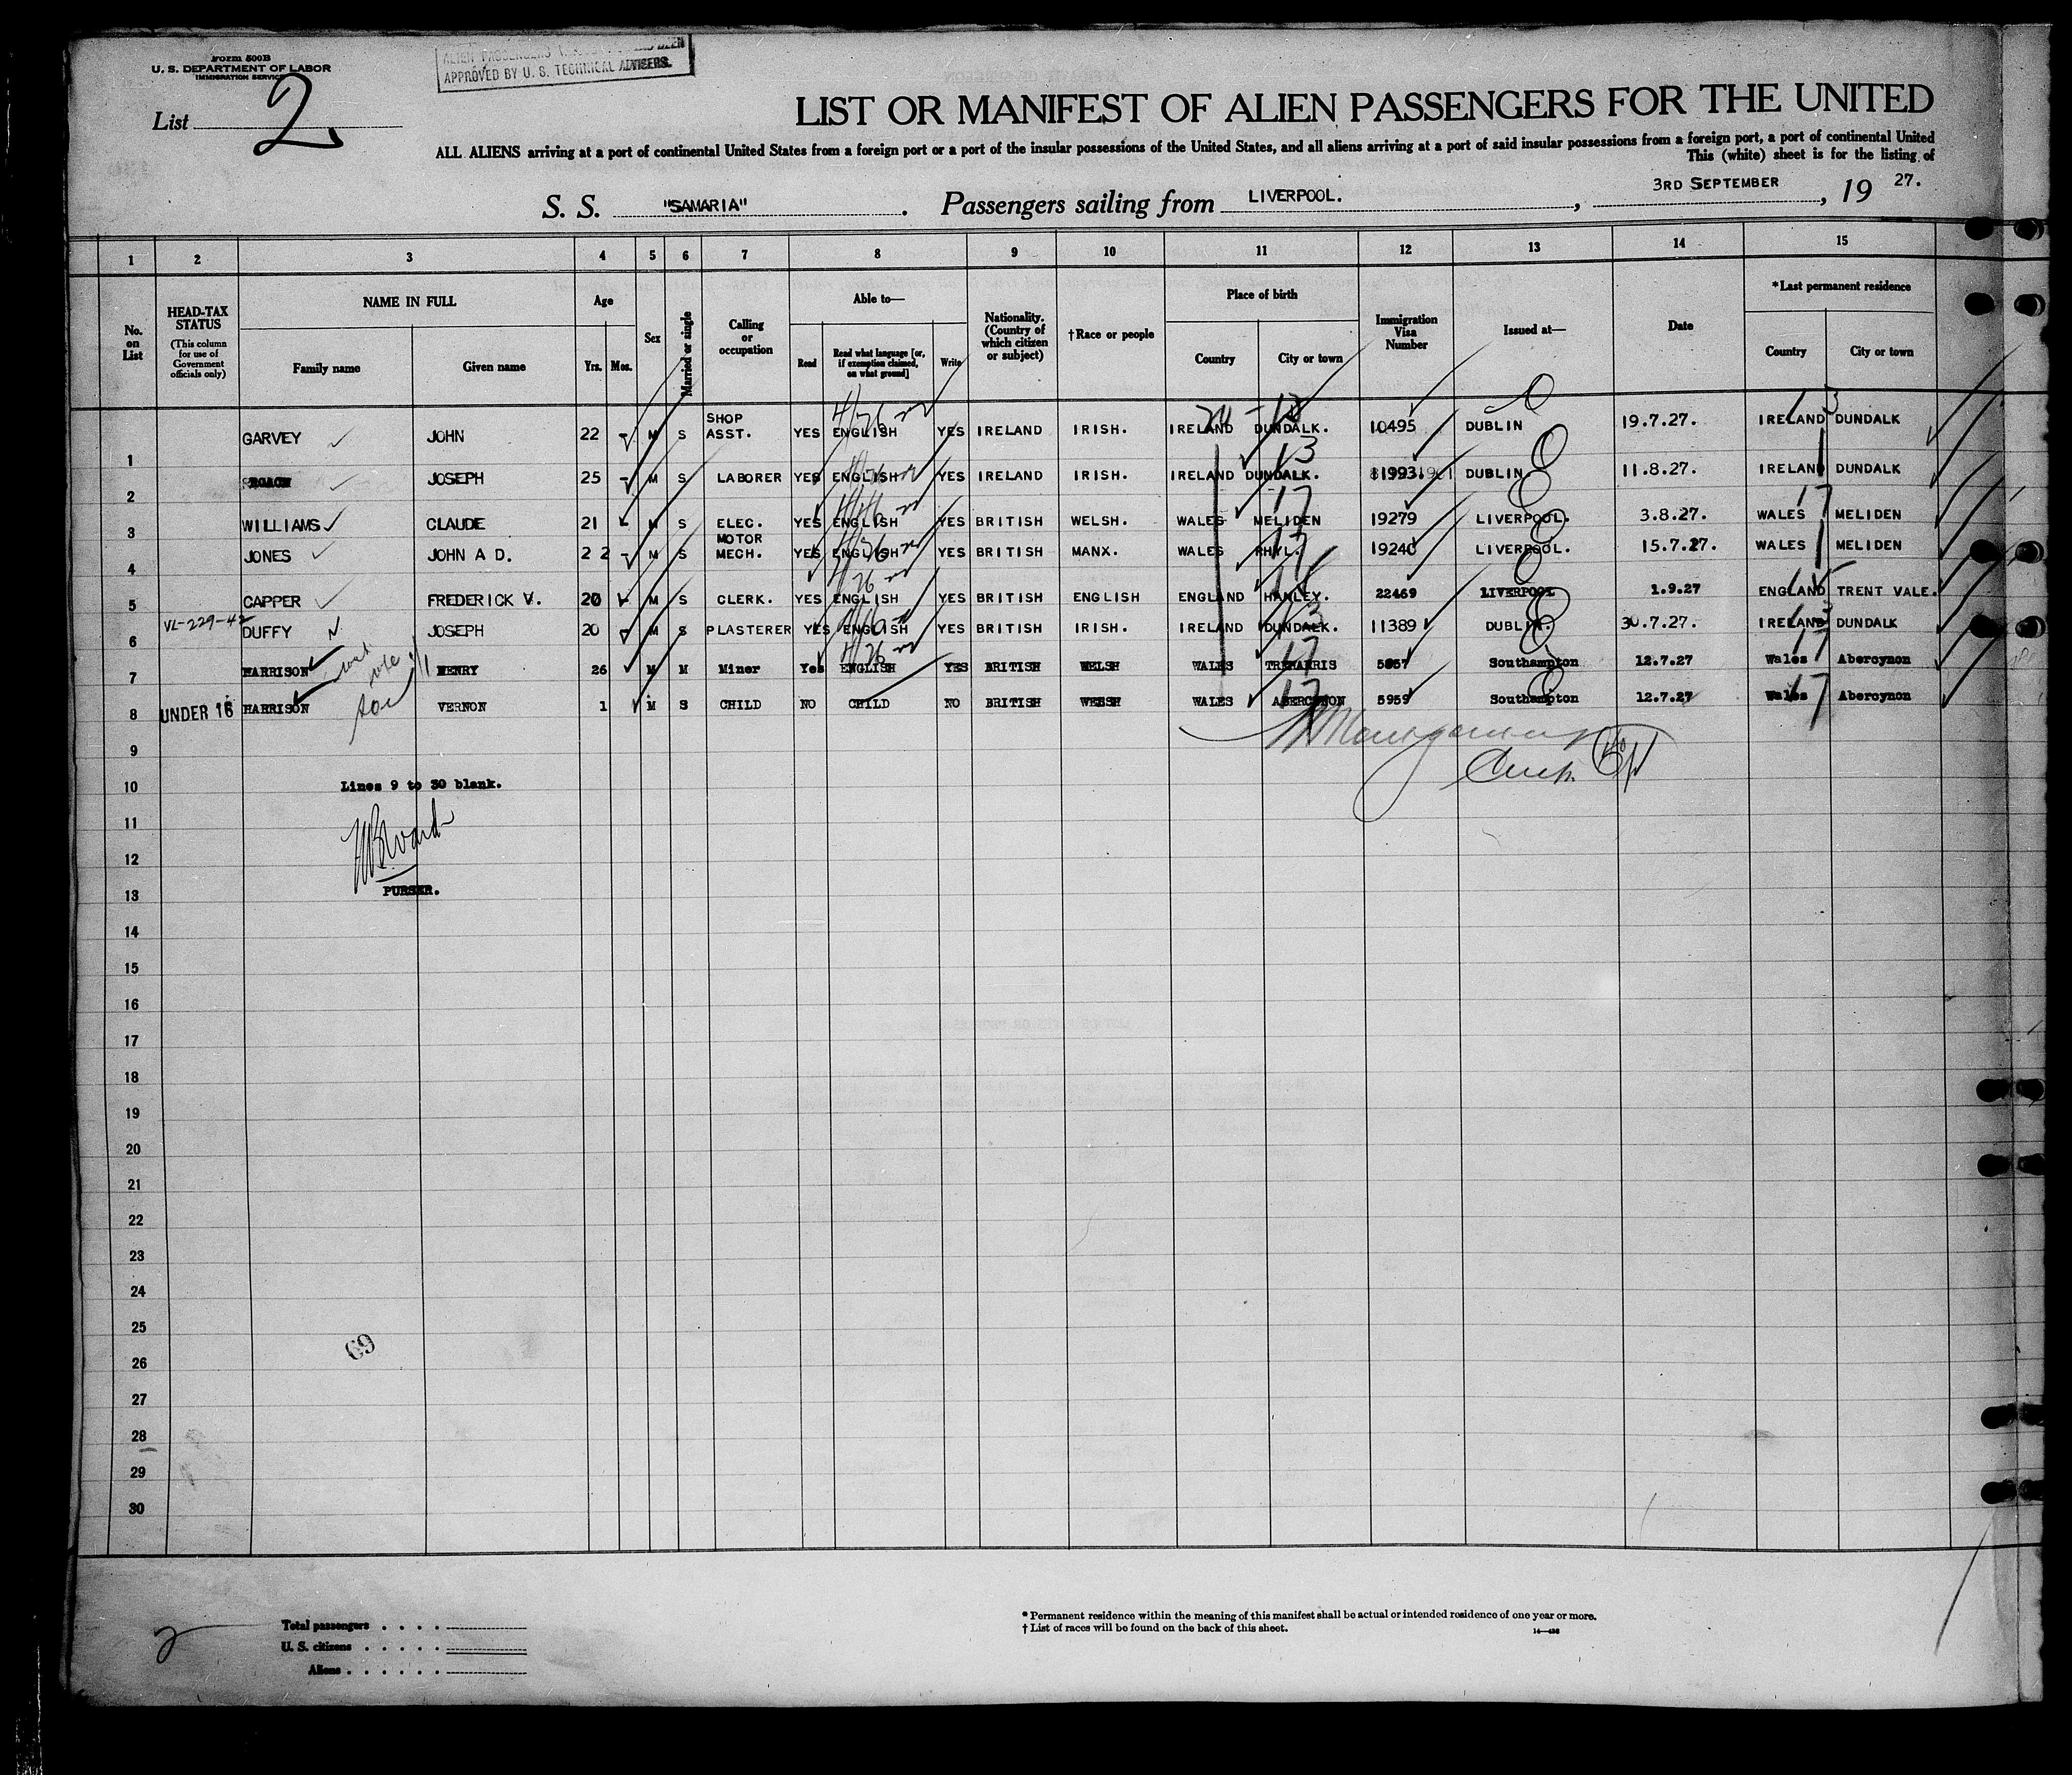 Form 500B
U. S. DEPARTMENT OF LABOR
IMMIGRATION SERVICE
APPROVED BY U. S. TECHNICAL ADVISERS.
List 2
LIST OR MANIFEST OF ALIEN PASSENGERS FOR THE UNITED
ALL ALIENS arriving at a port of continental United States from a foreign port or a port of the insular possessions of the United States, and all aliens arriving at a port of said insular possessions from a foreign port, a port of continental United
This (white) sheet is for the listing of
S. S. "SAMARIA". Passengers sailing from LIVERPOOL., 3RD SEPTEMBER, 19 27.
1 2 3 4 5 6 7 8 9 10 11 12 13 14 15
No. on List
HEAD-TAX STATUS (This column for use of Government officials only)
NAME IN FULL
Family name Given name
Age
Yrs. Mos.
Sex
Married or single
Calling or occupation
Able to—
Read
Read what language [or, if exemption claimed, on what ground]
Write
Nationality. (Country of which citizen or subject)
†Race or people
Place of birth
Country City or town
Immigration Visa Number
Issued at—
Date
*Last permanent residence
Country City or town
1 GARVEY JOHN 22 - M S SHOP ASST. YES ENGLISH YES IRELAND IRISH. IRELAND DUNDALK. 10495 DUBLIN 19.7.27. IRELAND DUNDALK
2 JOSEPH 25 - M S LABORER YES ENGLISH YES IRELAND IRISH. IRELAND DUNDALK. DUBLIN 11.8.27. IRELAND DUNDALK
3 WILLIAMS CLAUDE 21 - M S ELEC. YES ENGLISH YES BRITISH WELSH. WALES MELIDEN 19279 LIVERPOOL. 3.8.27. WALES MELIDEN
4 JONES JOHN A D. 22 - M S MOTOR MECH. YES ENGLISH YES BRITISH MANX. WALES RHYL. 19240 LIVERPOOL. 15.7.27. WALES MELIDEN
5 CAPPER FREDERICK V. 20 - M S CLERK. YES ENGLISH YES BRITISH ENGLISH ENGLAND HANLEY. 22469 LIVERPOOL 1.9.27 ENGLAND TRENT VALE.
VL-229-42
6 DUFFY JOSEPH 20 - M S PLASTERER YES ENGLISH YES BRITISH IRISH. IRELAND DUNDALK. 11389 DUBLIN. 30.7.27. IRELAND DUNDALK
7 HARRISON HENRY 26 M M Miner Yes ENGLISH YES BRITISH WELSH WALES TREHARRIS 5957 Southampton 12.7.27 Wales Abercynon
8 UNDER 16 HARRISON VERNON 1 M S CHILD NO CHILD NO BRITISH WELSH WALES ABERCYNON 5959 Southampton 12.7.27 Wales Abercynon
9
10
Lines 9 to 30 blank.
11
12
13
PURSER.
14
15
16
17
18
19
20
21
22
23
24
25
69
26
27
28
29
30
2
Total passengers . . . .
U. S. citizens . . . . .
Aliens . . . . . .
* Permanent residence within the meaning of this manifest shall be actual or intended residence of one year or more.
† List of races will be found on the back of this sheet.